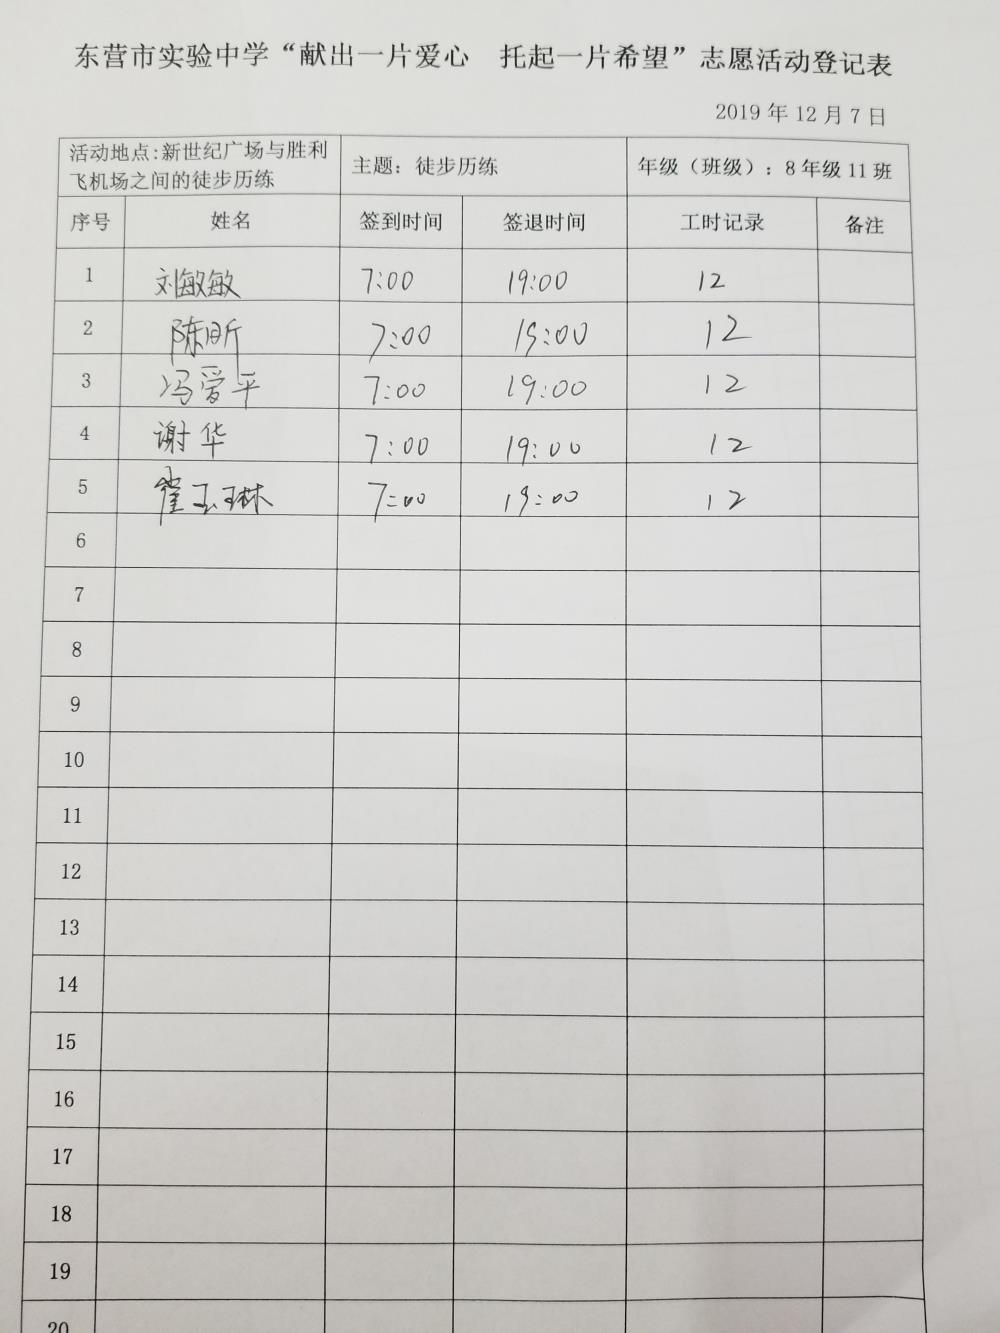 东营市实验中学“献出一片爱心 托起一片希望”志愿活动登记表
2019 年 12 月 7 日
活动地点:新世纪广场与胜利飞机场之间的徒步历练 主题：徒步历练 年级（班级）：8 年级 11 班
序号 姓名 签到时间 签退时间 工时记录 备注
1 刘敏敏 7:00 19:00 12
2 陈昕 7:00 19:00 12
3 冯爱平 7:00 19:00 12
4 谢华 7:00 19:00 12
5 崔玉琳 7:00 19:00 12
6
7
8
9
10
11
12
13
14
15
16
17
18
19
20